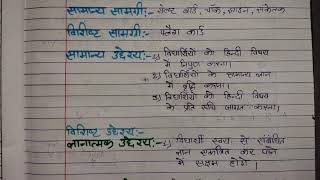 सामान्य सामग्री:- रोलर बोर्ड, चॉक, डस्टर, संकेतक
विशिष्ट सामग्री:- फ्लैश कार्ड
सामान्य उद्देश्य:- 1) विद्यार्थियों को हिन्दी विषय
में निपुण करना।
2) विद्यार्थियों के सामान्य ज्ञान
में वृद्धि करना।
3) विद्यार्थियों की हिन्दी विषय
के प्रति रुचि जागृत करना।
विशिष्ट उद्देश्य:-
ज्ञानात्मक उद्देश्य:- 1) विद्यार्थी स्वरों से संबंधित
ज्ञान कर पाने
में सक्षम होंगे।